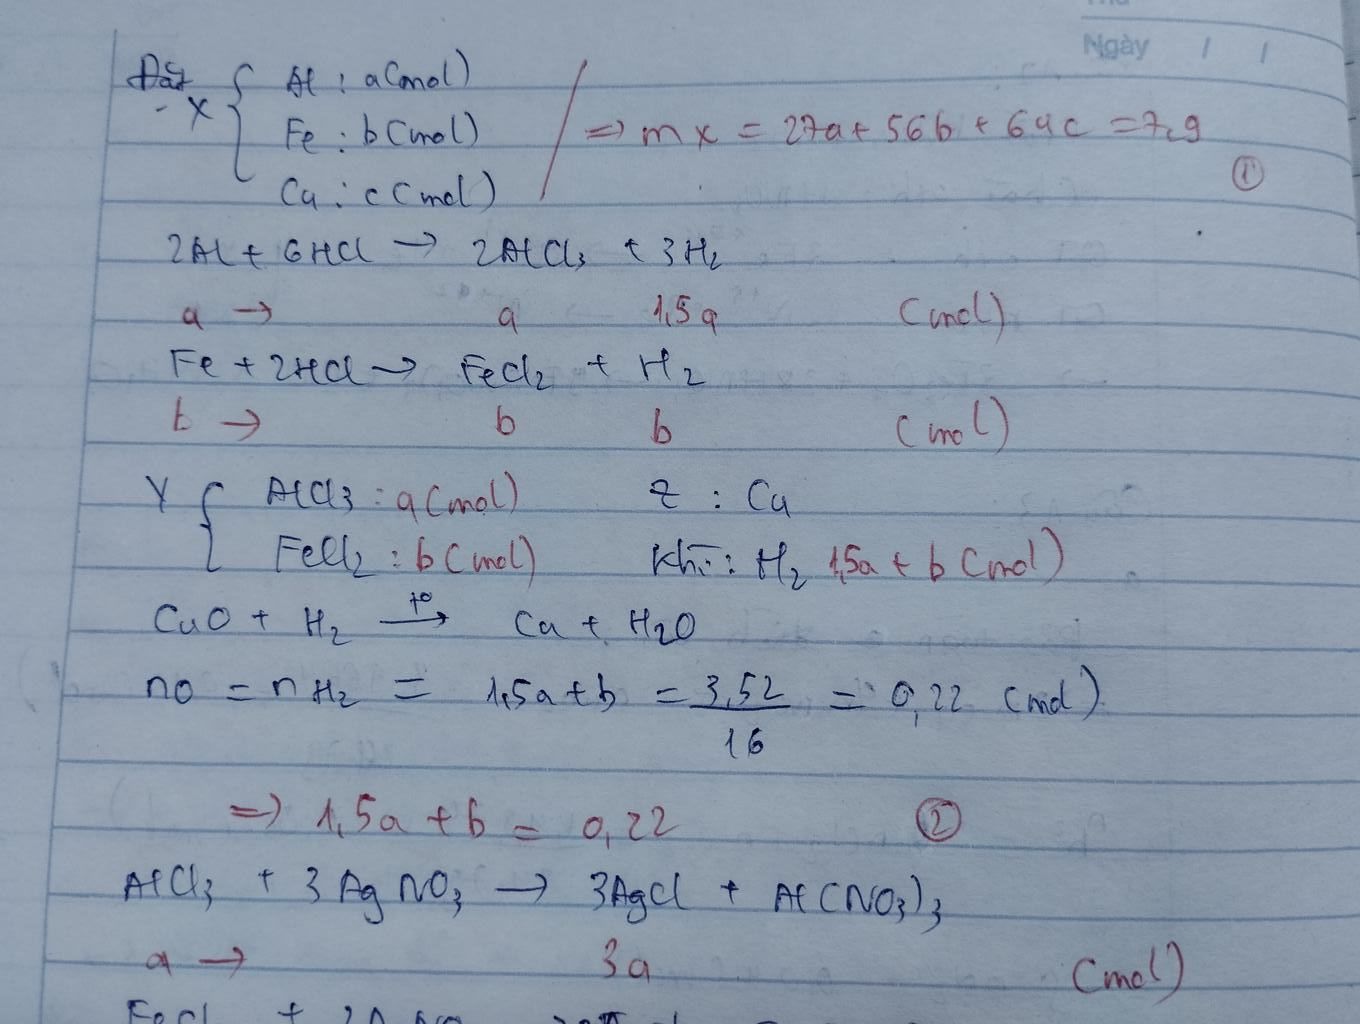 Ngày / /
Đặt X { Al : a (mol)
Fe : b (mol)
Cu : c (mol)
=> mX = 27a + 56b + 64c = 7,9 ①
2Al + 6HCl → 2AlCl3 + 3H2
a → a 1,5a (mol)
Fe + 2HCl → FeCl2 + H2
b → b b (mol)
Y { AlCl3 : a (mol) Z : Cu
FeCl2 : b (mol) Khí : H2 1,5a + b (mol)
CuO + H2 →(t°) Cu + H2O
nO = nH2 = 1,5a + b = 3,52/16 = 0,22 (mol)
=> 1,5a + b = 0,22 ②
AlCl3 + 3AgNO3 → 3AgCl + Al(NO3)3
a → 3a (mol)